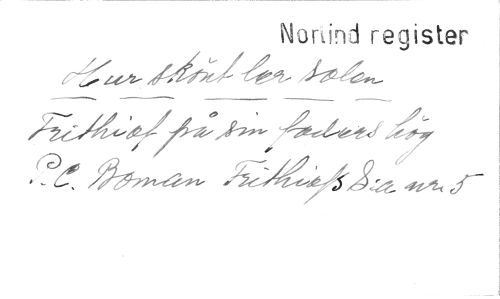 Norlind register
Hur skönt ler solen
Frithiof på sin faders hög
P.C. Boman Frithiofs S:a nr. 5